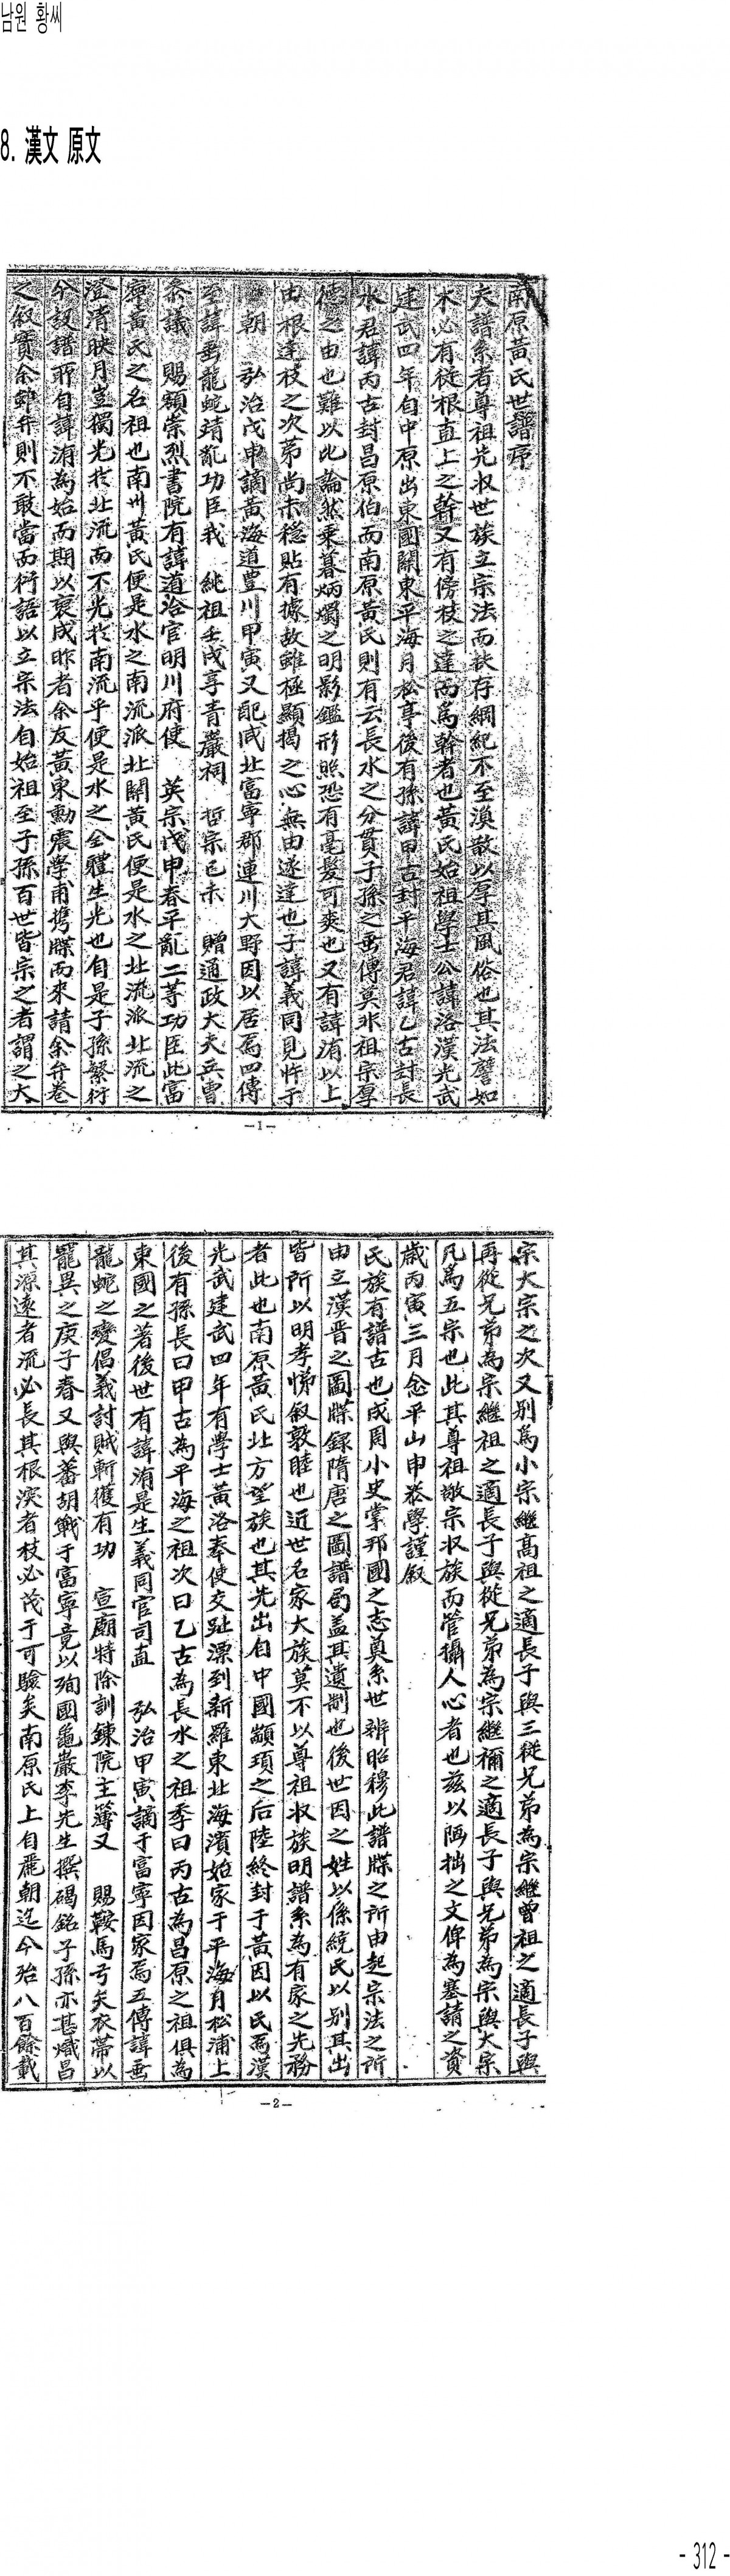 남원 황씨
8. 漢文 原文
南原黃氏世譜序
夫譜系者尊祖先收世族立宗法而扶存綱紀不至渙散以厚其風俗也其法譬如
木必有從根直上之幹又有傍枝之達而爲幹者也黃氏始祖學士公諱洛漢光武
建武四年自中原出東國關東平海月松亭後有孫諱甲古封平海君諱乙古封長
水君諱丙古封昌原伯而南原黃氏則有云長水之分貫子孫之垂傳莫非祖宗厚
德之由也難以此論然乘暮炳燭之明影鑑形照恐有毫髮可爽也又有諱洧以上
由根達枝之次第尚未穩貼有據故雖極顯揭之心無由遂達也子諱義同見忤于
朝 弘治戊申謫黃海道豊川甲寅又配咸北富寧郡連川大野因以居焉四傳
至諱垂龍蛇靖亂功臣我 純祖壬戌享青巖祠 哲宗己未 贈通政大夫兵曹
叅議 賜額崇烈書院有諱道洽官明川府使 英宗戊申春平亂二等功臣此富
寧黃氏之名祖也南州黃氏便是水之南流派北關黃氏便是水之北流派北流之
澄清映月豈獨光於北流而不光於南流乎便是水之全體生光也自是子孫繁衍
今設譜所自諱洧為始而期以裒成昨者余友黃東勳震學甫携牒而來請余弁卷
之叙實余卸弁則不敢當而衍語以立宗法自始祖至子孫百世皆宗之者謂之大
-1-
宗大宗之次又別爲小宗繼高祖之適長子與三從兄弟為宗繼曾祖之適長子與
再從兄弟為宗繼祖之適長子與從兄弟為宗繼禰之適長子與兄弟為宗與大宗
凡爲五宗也此其尊祖敬宗收族而管攝人心者也茲以陋拙之文俾為塞請之資
歲丙寅三月念平山申 學謹叙
民族有譜古也成周小史掌邦國之志奠系世辨昭穆此譜牒之所由起宗法之所
由立漢晋之圖牒錄隋唐之圖譜局盖其遺制也後世因之姓以係統氏以別其出
皆所以明孝悌叙敦睦也近世名家大族莫不以尊祖收族明譜系為有家之先務
者此也南原黃氏北方望族也其先出自中國顓頊之后陸終封于黃因以氏焉漢
光武建武四年有學士黃洛奉使交趾漂到新羅東北海濱始家于平海月松浦上
後有孫長曰甲古為平海之祖次曰乙古為長水之祖季曰丙古為昌原之祖俱為
東國之著後世有諱洧是生義同官司直 弘治甲寅謫于富寧因家焉五傳諱垂
龍蛇之變倡義討賊斬獲有功 宣廟特除訓鍊院主簿又 賜鞍馬弓矢衣帶以
罷異之庚子春又與蕃胡戰于富寧竟以殉國龜巖李先生撰碣銘子孫亦甚熾昌
其源遂者流必長其根深者枝必茂于可驗矣南原氏上自麗朝迄今殆八百餘載
-2-
- 312 -